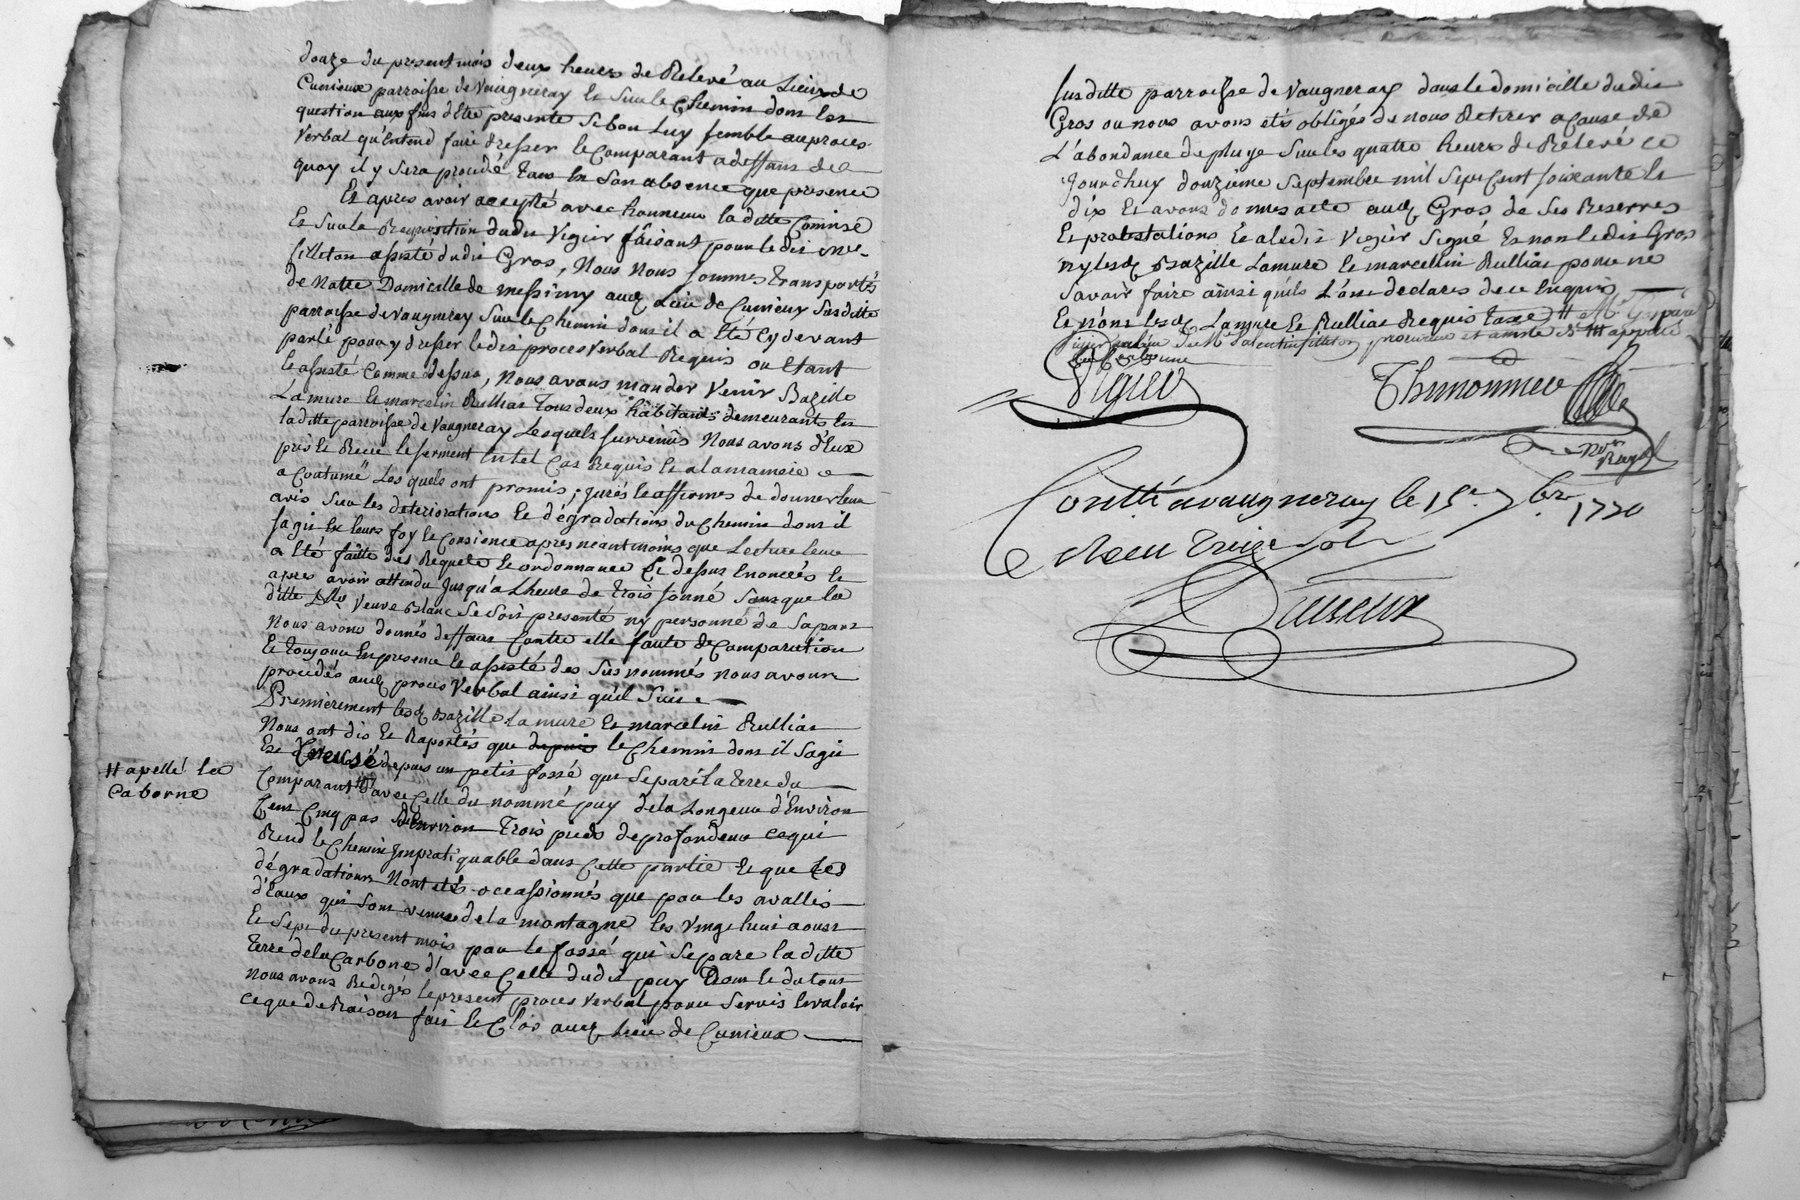 douze du present mois deux heures de Relevé au Lieu de
Cunieux parroisse de Vaugneray Et Sur le Chemin dont Est
question aux fins d'Etre presente Si bon Luy semble au proces
Verbal qu'Entend faire dresser le Comparant a deffaut de
quoy il y Sera procédé tant En Son absence que presence
Et apres avoir accepté avec honneur laditte Comise
Et Sur la Requisition dudit Vigier faisant pour ledit Me
filleton assisté dudit Gros, Nous Nous sommes transportés
de Notre Domicille de messimy audt Lieu de Cunieux Susditte
parroisse de Vaugneray Sur le Chemin dont il a Eté Cy devant
parlé pour y dresser ledit proces verbal Requis ou Etant
Et assisté Comme dessus, Nous avons mander Venir Bazille
Lamure Et marcelin Rullias tous deux habitants demeurants En
laditte parroisse de Vaugneray Lesquels survenus Nous avons d'Eux
pris Et Receu le serment En tel Cas Requis Et a la maniere
a Coutumé Les quels ont promis, jurés Et affirmés de donner leur
avis Sur les deteriorations Et dégradations du Chemin dont il
sagit En leurs foy Et Consience apres néantmoins que Lecture leur
a Eté faitte des Requete Et ordonnance Ci dessus Enoncées Et
apres avoir attendu Jusqu'a Lheure de trois sonné Sans que la
ditte Ve Veuve Blanc Se Soit presenté ny personne de Sa part
Nous avons donnés deffaut Contre elle faute de Comparution
Et toujours En presence Et assisté des Susnommés nous avons
procédés audt proces Verbal ainsi qu'il Suit
Premierement lesdt Bazille Lamure Et marcelin Rullias
Nous ont dit Et Raportés que depuis le Chemin dont il Sagit
Est Creusé depuis un petit fossé que Separé la terre du
Comparant # d'avec Celle du nommé puy de la Longeur d'Environ
# apellé La
Caborne
Cent Cinq pas d'Environ trois pieds de profondeur Ce qui
Rend le Chemin Jmpratiquable dans Cette partie Et que Les
dégradations N'ont etés occassionnés que par les avallis
d'Eaux qui Sont venues de la montagne Les Vingt huit aoust
Et Sept du present mois par le fossé qui Separe la ditte
terre de la Carbone d'avec Celle dudit puy Dont Et du tout
Nous avons Rédigés Le present proces verbal pour Servir Et valoir
Ce que de Raison fait Et Clos audt Lieu de Cunieux
Susditte parroisse de Vaugneray dans le domicille dudit
Gros ou nous avons etés obligés de nous Retirer a cause de
L'abondance de pluye Sur les quatre heures de Relevé Ce
Jourdhuy douzieme Septembre mil Sept Cent soixante Et
dix Et avons donnés acte audt Gros de Ses Reserves
Et protestations Et a ledit Vigier Signé Et non ledit Gros
ny lesdt Bazille Lamure Et marcellin Rullias pour ne
Savoir faire ainsi qu'ils L'ont declarés de ce Enquis
Et n'ont lesdt Lamure Et Rullias Requis taxe # Me
Vigier
Thimonnier
Nre
Royal
Contlé a vaugneray le 15e 7bre 1770
Recu Treize Sols